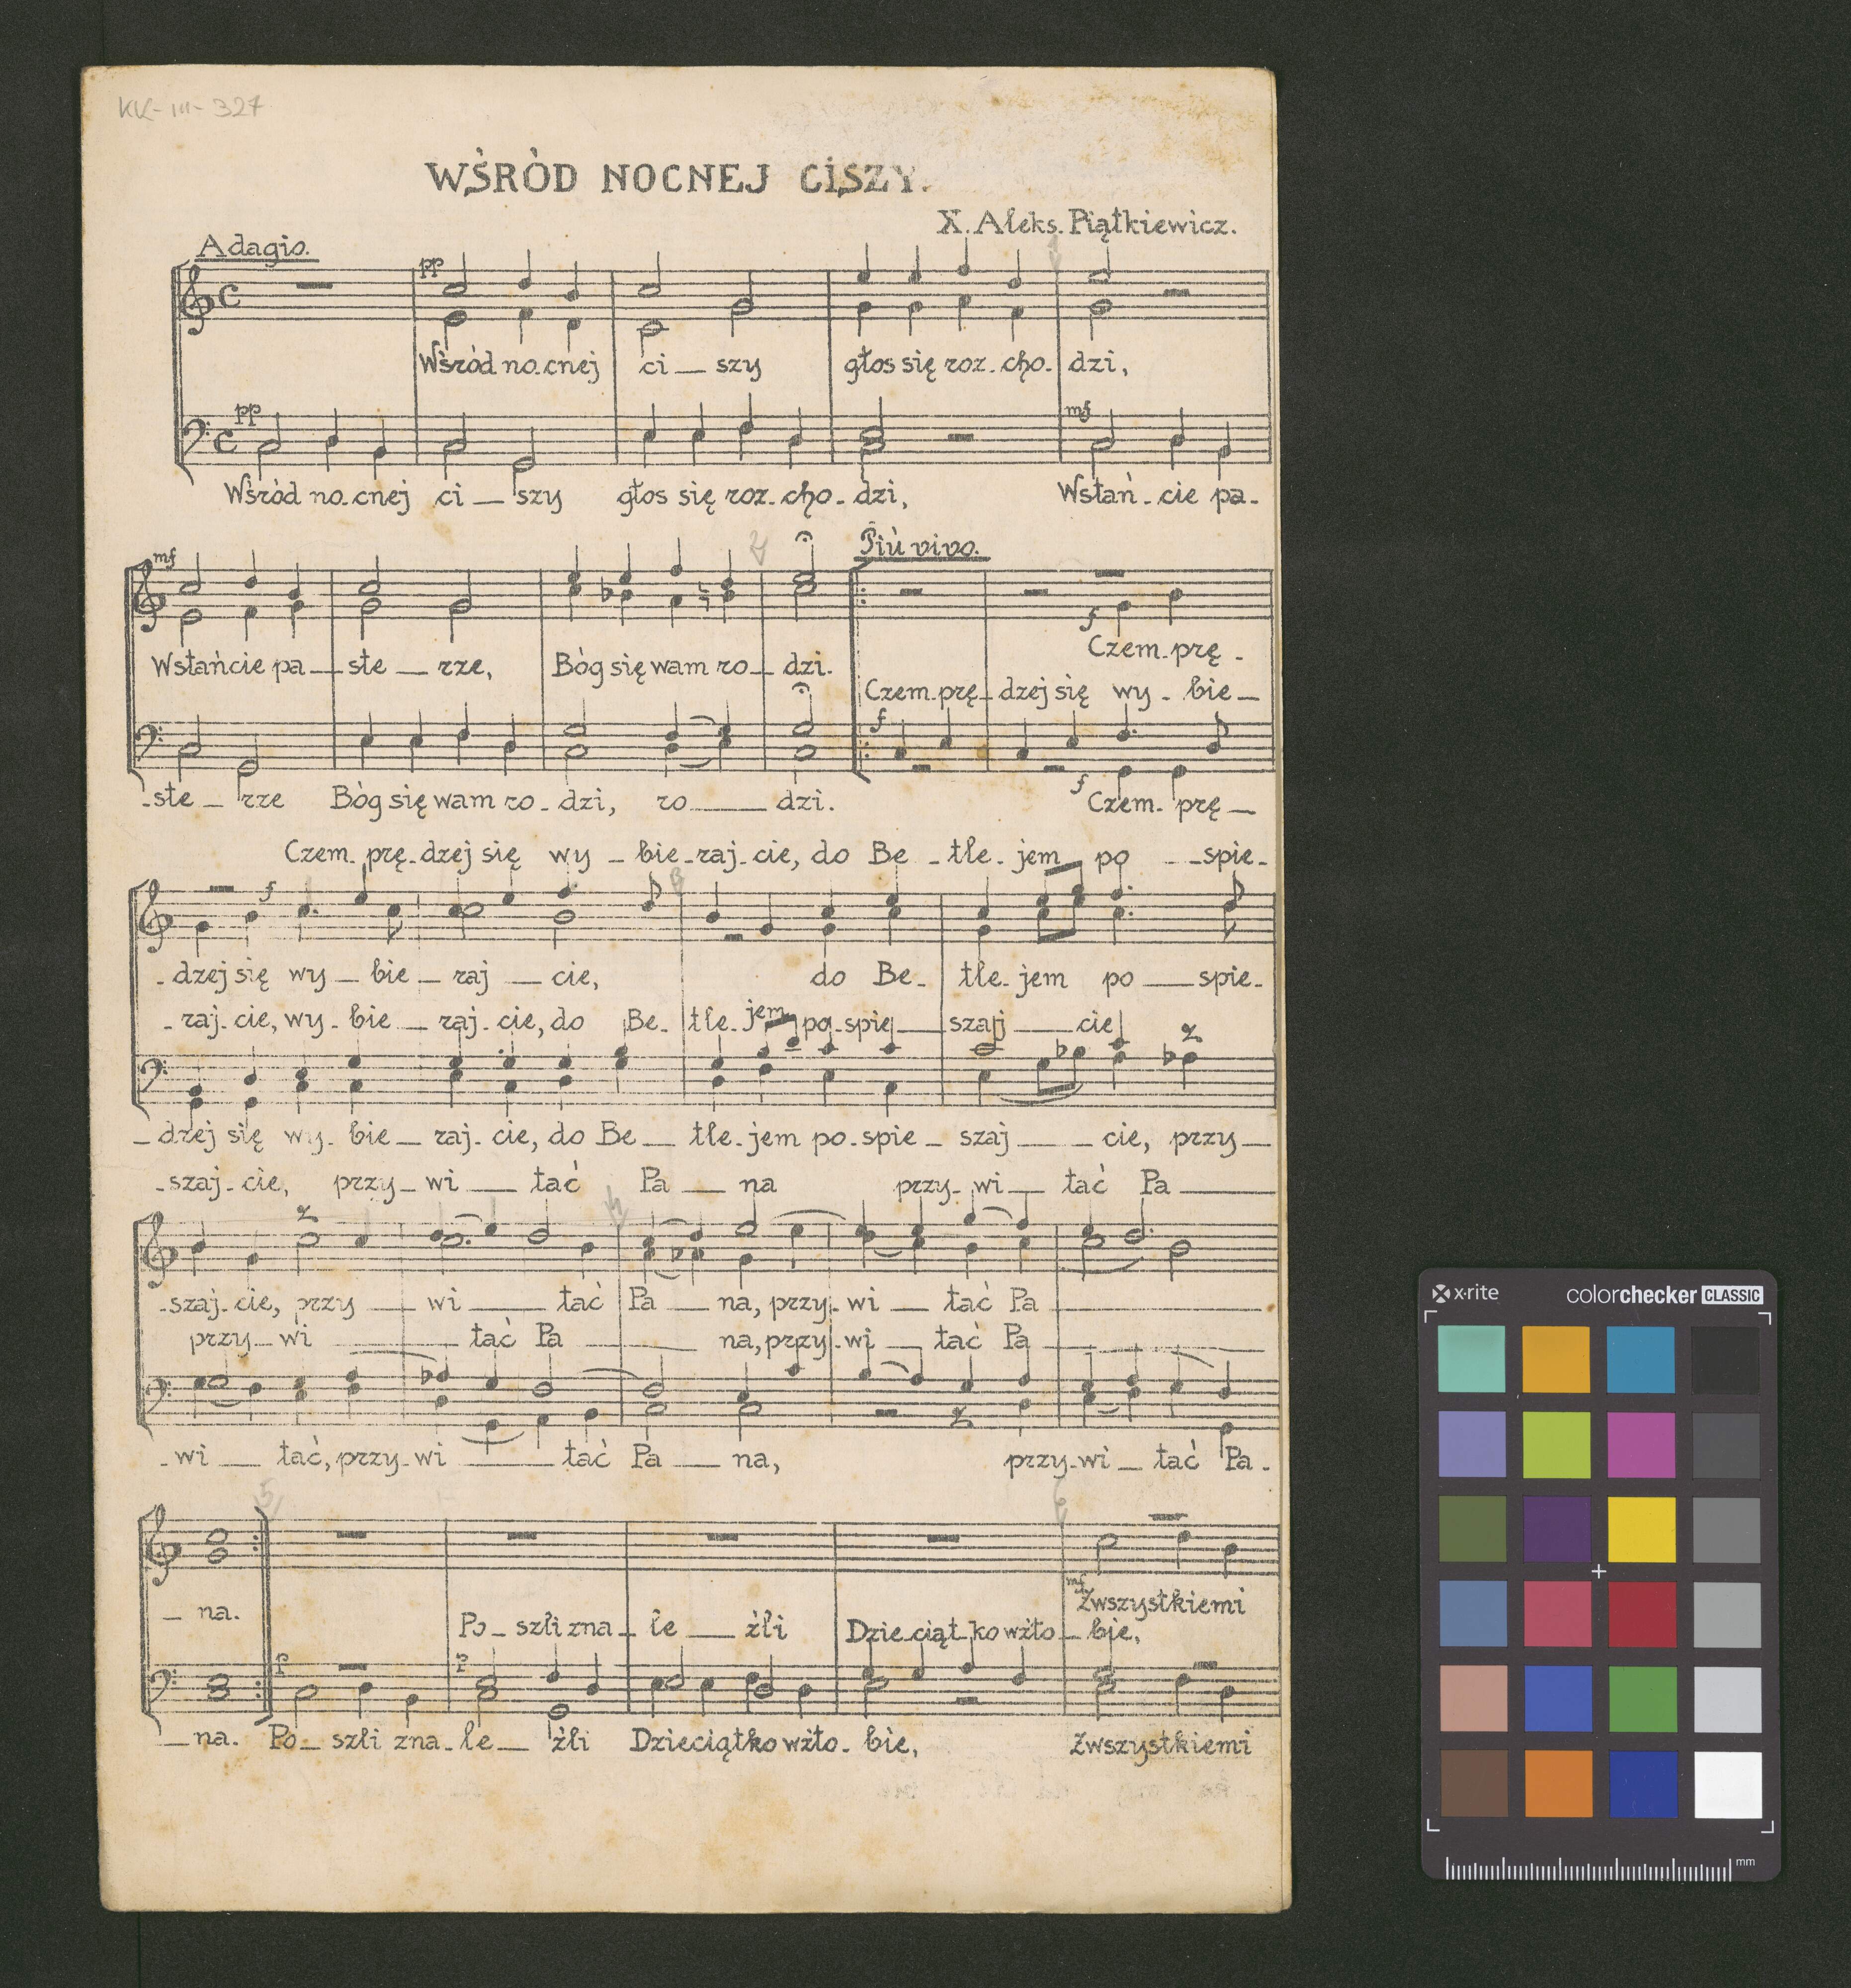 KK-III-327
WŚRÒD NOCNEJ CISZY.
X. Aleks. Piątkiewicz.
Adagio.
pp
Wśród no-cnej ci — szy głos się roz-cho- dzi,
pp mf
Wśród no-cnej ci — szy głos się roz-cho-dzi, Wstań-cie pa-
2 Più vivo.
mf
f
Czem-prę-
Wstańcie pa — ste — rze, Bóg się wam ro — dzi.
Czem-prę-dzej się wy-bie —
f
f
-ste — rze Bóg się wam ro-dzi, ro — dzi. Czem-prę —
Czem-prę-dzej się wy-bie-raj-cie, do Be-tle-jem po-spie-
f
-dzej się wy — bie — raj — cie, do Be- tle-jem po — spie-
-raj-cie, wy-bie — raj-cie, do Be- tle-jem po-spie — szaj — cie
-dzej się wy-bie — raj-cie, do Be — tle-jem po-spie — szaj — cie, przy —
-szaj-cie, przy-wi — tać Pa — na przy-wi — tać Pa —
-szaj-cie, przy — wi — tać Pa — na, przy-wi — tać Pa —
przy-wi — tać Pa — na, przy-wi — tać Pa —
-wi — tać, przy-wi — tać Pa — na, przy-wi — tać Pa-
5 6
mf
Zwszystkiemi
— na.
Po-szli zna-le — źli Dzie-ciąt-ko wżło-bie,
p p
— na. Po-szli zna-le — źli Dzieciątko wżło-bie, Zwszystkiemi
x·rite colorchecker CLASSIC
mm